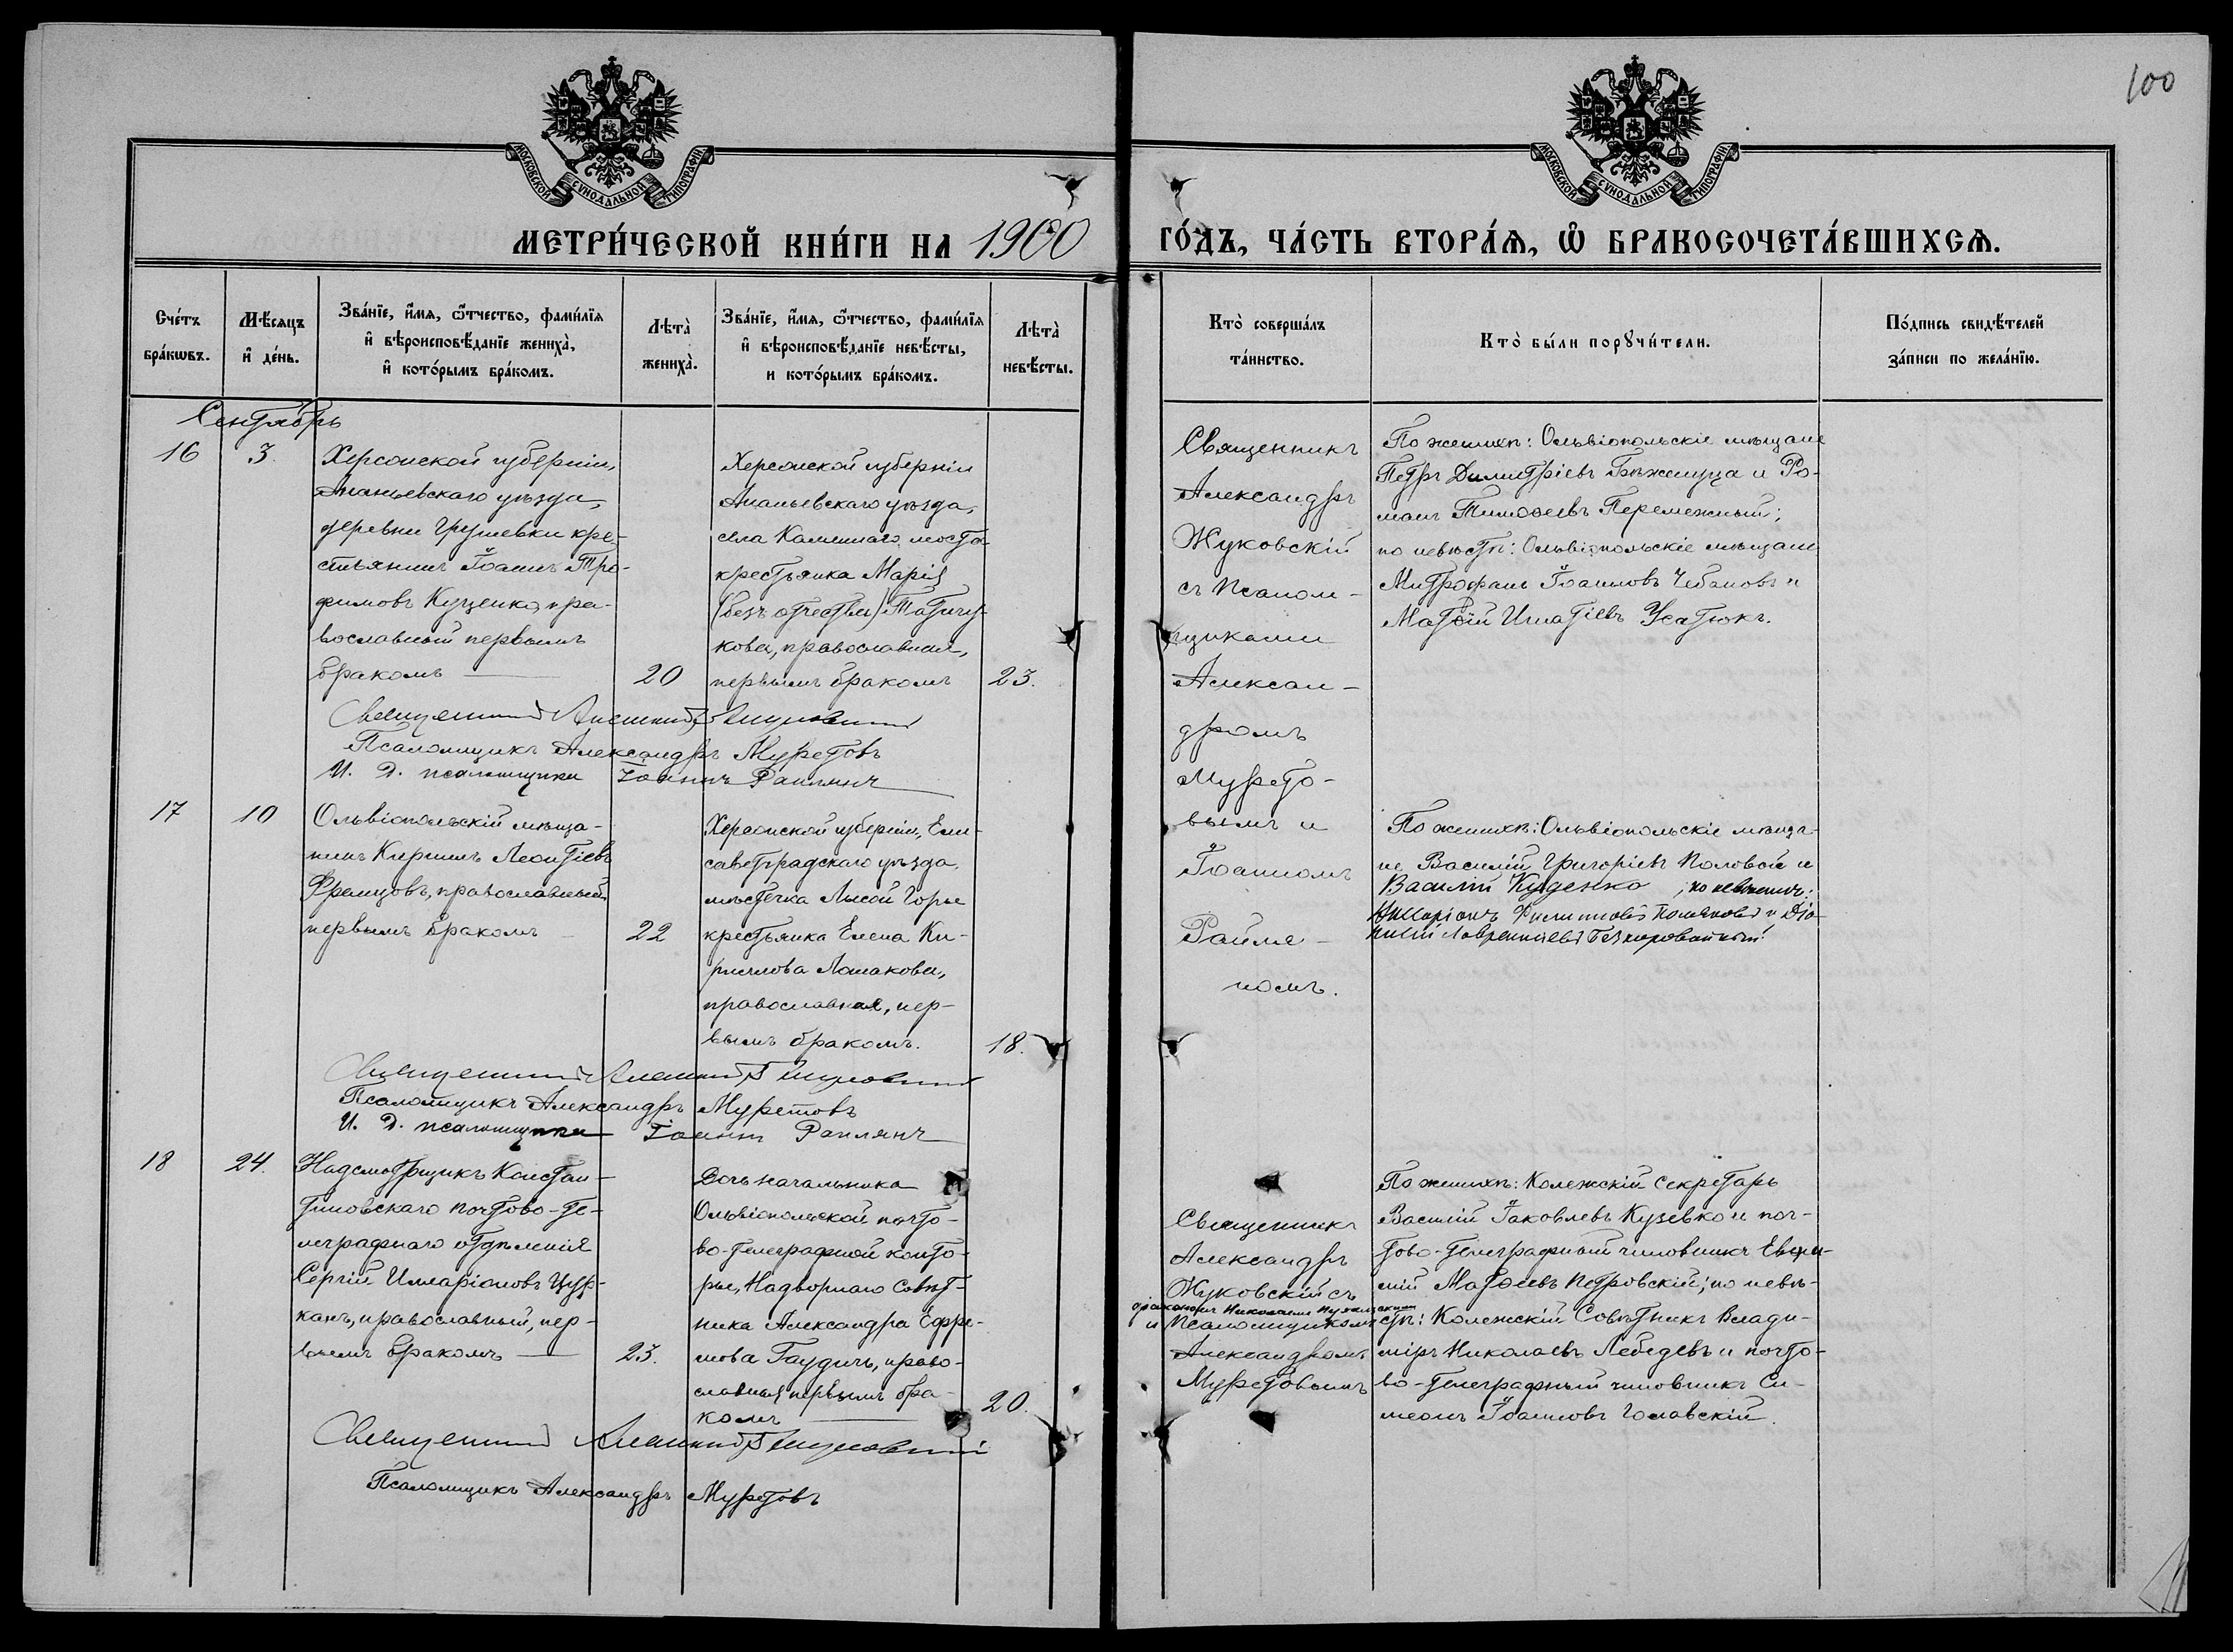 100
МОСКОВСКОЙ СѴНОДАЛЬНОЙ ТИПОГРАФІИ
МОСКОВСКОЙ СѴНОДАЛЬНОЙ ТИПОГРАФІИ
МЕТРИ́ЧЕСКОЙ КНИ́ГИ НА 1900 ГО́ДЪ, ЧА́СТЬ ВТОРА́Я, Ѡ҆ БРАКОСОЧЕТА́ВШИХСЯ.
Сче́тъ
бра́кѡвъ.
Мѣ́сяцъ
и҆ де́нь.
Зва́нїе, и҆́мя, ѻ҆́тчество, фами́лїя
и҆ вѣроисповѣ́данїе жениха̀,
и҆ кото́рымъ бра́комъ.
Лѣта̀
жениха̀.
Зва́нїе, и҆́мя, ѻ҆́тчество, фами́лїя
и҆ вѣроисповѣ́данїе невѣ́сты,
и кото́рымъ бра́комъ.
Лѣта̀
невѣ́сты.
Кто̀ соверша́лъ
та́инство.
Кто̀ бы́ли порꙋчи́тели.
По́дпись свидѣ́телей
за́писи по жела́нїю.
Сентябрь
16
3.
Херсонской губерніи,
Ананьевскаго уѣзда,
деревни Грушевки кре-
стьянинъ Іоаннъ Тро-
фимовъ Куценко, пра-
вославный первымъ
бракомъ
20
Херсонской губерніи
Ананьевскаго уѣзда,
села Каменнаго моста
крестьянка Марія
(безъ отчества) Татичу-
кова, православная,
первымъ бракомъ
23.
Священникъ
Александръ
Жуковскій
съ псалом-
щиками
Алексан-
дромъ
Мурето-
вымъ и
Іоанномъ
Райля-
номъ.
По женихѣ: Ольвіопольскіе мѣщане
Петръ Димитріевъ Бѣжемуца и Ро-
манъ Тимоѳеевъ Перемежный;
по невѣстѣ: Ольвіопольскіе мѣщане
Митрофанъ Іоанновъ Чебановъ и
Матѳій Игнатіевъ Усатюкъ.
Священникъ Александръ Жуковскій
Псаломщикъ Александръ Муретовъ
И. Д. псаломщика Іоаннъ Раилянъ
17
10
Ольвіопольскій мѣща-
нинъ Кириллъ Леонтіевъ
Францовъ, православный
первымъ бракомъ
22
Херсонской губерніи, Ели-
саветградскаго уѣзда,
мѣстечка Лысой Горы
крестьянка Елена Ки-
риллова Ломакова,
православная, пер-
вымъ бракомъ.
18.
По женихѣ: Ольвіопольскіе мѣща-
не Василій Григоріевъ Половой и
Василій Куценко; по невѣстѣ:
Илларіонъ Филипповъ Поляковъ и Діо-
нисій Лаврентіевъ Безкоровайный.
Священникъ Александръ Жуковскій
Псаломщикъ Александръ Муретовъ
И. Д. псаломщика Іоаннъ Раилянъ
18
24.
Надсмотрщикъ Констан-
тиновскаго почтово-те-
леграфнаго отдѣленія
Сергій Илларіоновъ Цур-
канъ, православный, пер-
вымъ бракомъ
23.
Дочь начальника
Ольвіопольской почто-
во-телеграфной конто-
ры, Надворнаго Совѣт-
ника Александра Ефре-
мова Гаудичъ, право-
славная первымъ бра-
комъ
20.
Священникъ
Александръ
Жуковскій съ
діакономъ Николаемъ
и псаломщикомъ
Александромъ
Муретовымъ
По женихѣ: Колежскій Секретарь
Василій Іаковлевъ Кузевко и поч-
тово-телеграфный чиновникъ Евѳи-
мій Матѳеевъ Петровскій; по невѣ-
стѣ: Колежскій Совѣтникъ Влади-
міръ Николаевъ Лебедевъ и почто-
во-телеграфный чиновникъ Си-
меонъ Іоанновъ Голавскій.
Священникъ Александръ Жуковскій
Псаломщикъ Александръ Муретовъ